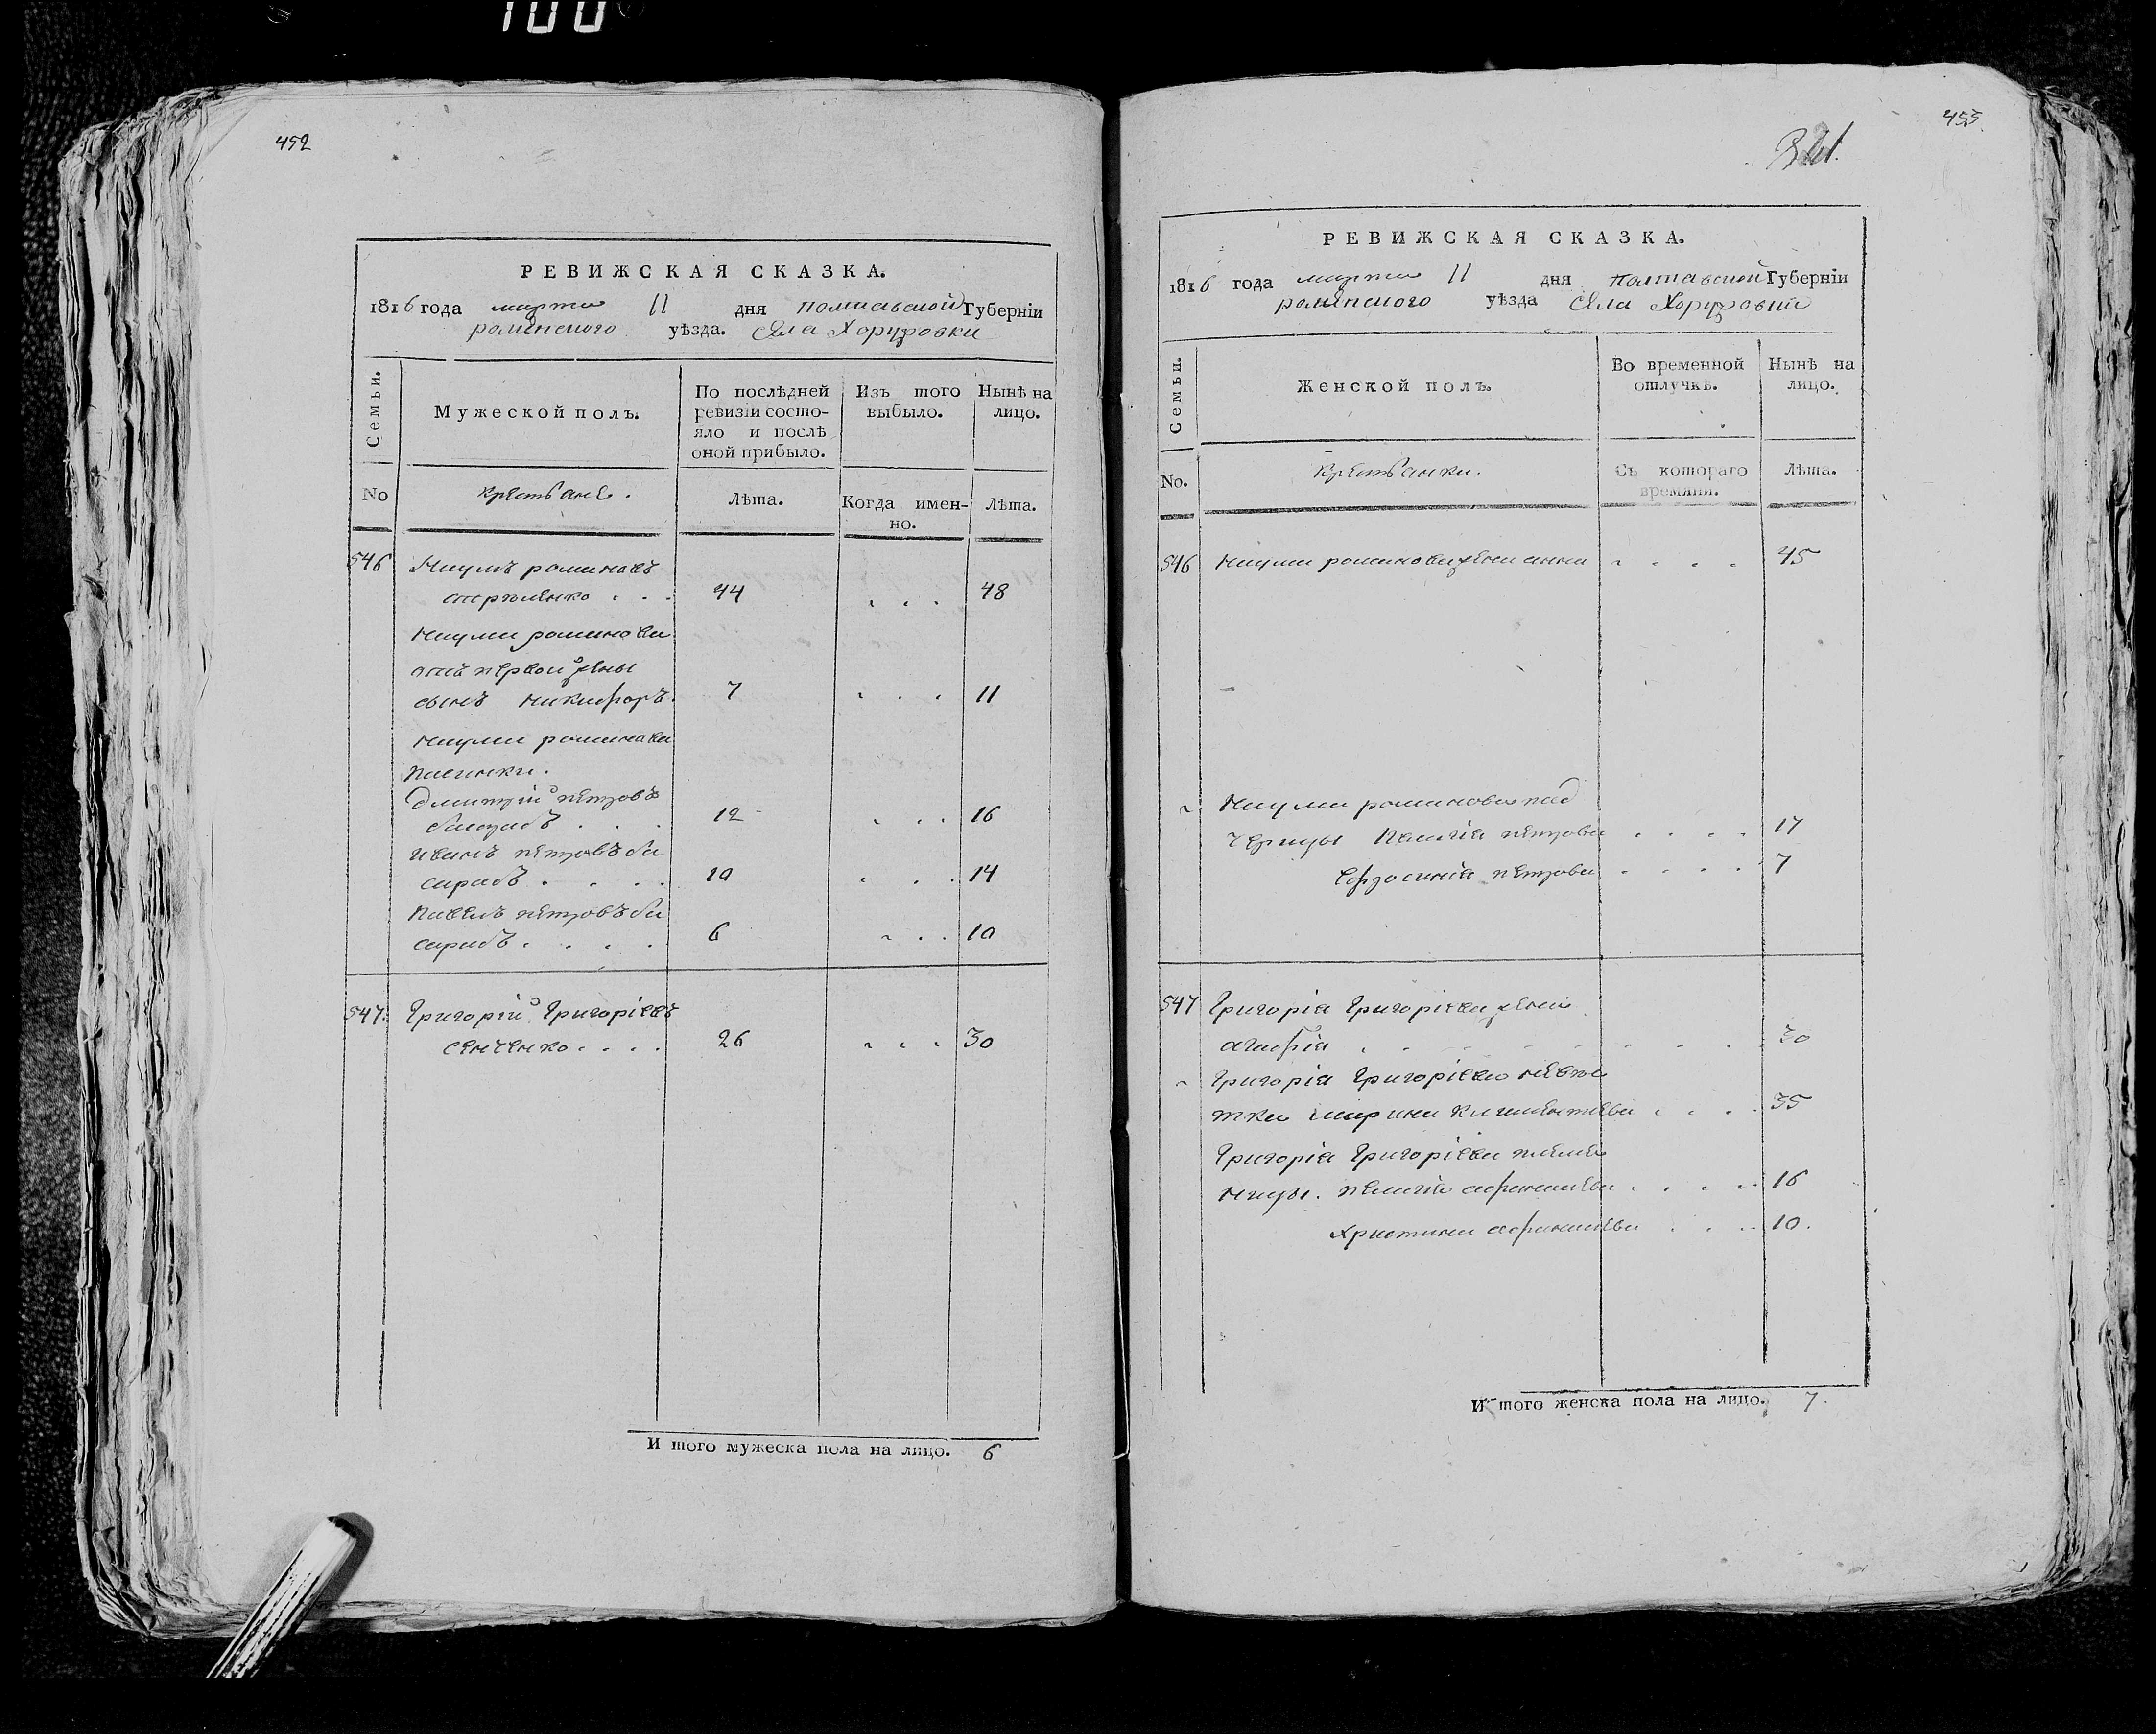 100
452
РЕВИЖСКАЯ СКАЗКА.
1816 года марта 11 дня полтавской Губерніи
роменского уѣзда. села Хоружовки
Семьи.
Мужеской полъ.
По послѣдней ревизіи состо-
яло и послѣ
оной прибыло.
Изъ того
выбыло.
Нынѣ на
лицо.
No
крестьяне.
Лѣта.
Когда имен-
но.
Лѣта.
546 Наумъ романовъ
44 . . . 48
Наума романова
отъ первой жены
сынъ никифоръ. 7 . . . 11
Наума романова
пасынки.
Дмитрій петровъ
12 . . . 16
иванъ петровъ ба
сарабъ . . . . 10 . . . 14
Павелъ петровъ ба
сарабъ . . . . 6 . . . 10
547. Григорій Григоріевъ
сенченко . . . . 26 . . . 30
И того мужеска пола на лицо. 6
453.
321.
РЕВИЖСКАЯ СКАЗКА.
1816 года марта 11 дня полтавской Губерніи
роменского уѣзда села Хоружовки
Семьи.
Женской полъ.
Во временной
отлучкѣ.
Нынѣ на
лицо.
No.
крестьянки.
Съ котораго
времяни.
Лѣта.
546 Наума романова жена анна . . . . 45
Наума романова пад
черицы Пелагія петрова . . . . 17
Ефросинія петрова . . . . 7
547 Григорія Григоріева жена
агафія . . . . 30
Григорія Григоріева невѣс
тка марина . . . . 35
Григорія Григоріева племя
ницы. пелагія афанасіева . . . . 16
Христина афанасіева . . . . 10.
И того женска пола на лицо. 7.